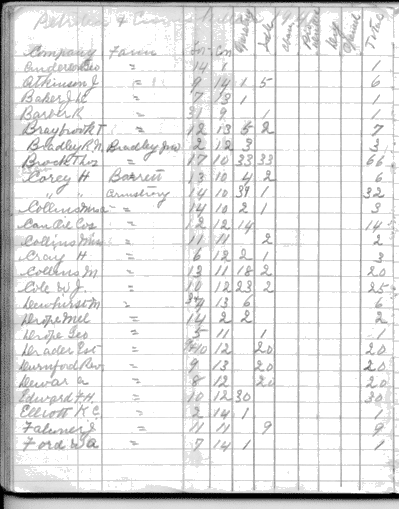 Company Farm Con Operating Idle Total
Anderson Geo " 14 1 1
Atkinson J " 9 14 1 5 6
Baker J " 7 13 1 1
Barber R " 31 9 1 1
Braybrook T " 12 13 5 2 7
Bradley R. N. Bradley 2 12 3 3
Brock Thos " 17 10 33 33 66
Corey H Barrett 13 10 4 2 6
" " Armstrong 14 10 1 32
Collins " 14 10 2 1 3
Can Oil Cos " 12 12 14 14
Collins " 11 11 2 2
Craig H " 6 12 2 1 3
Collins M " 13 11 18 2 20
Cole W J. " 10 12 23 2 25
Dewhirst M " 13 6 6
Drope Mel " 14 2 2 2
Drope Geo " 5 11 1 1
Drader Est " 10 12 20 20
Durnford " 9 13 20 20
Dewar A " 8 12 20 20
Edward F. H. " 10 12 30 30
Elliott K C " 2 14 1 1
Falmer J " 11 11 9 9
Ford W A " 7 14 1 1